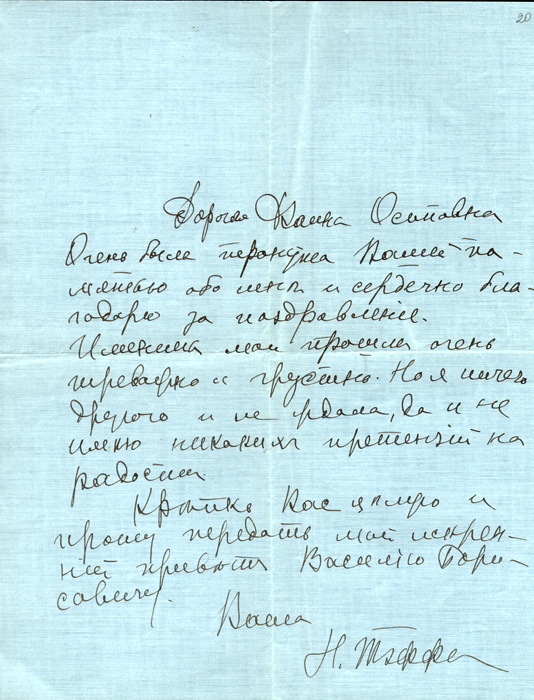 20
Дорогая Жанна Осиповна
Очень была тронута Вашей па-
мятью обо мнѣ и сердечно бла-
годарю за поздравленіе.
Именины мои прошли очень
тревожно и грустно. Но я ничего
другого и не ждала, да и не
имѣю никакихъ претензій на
радости.
Крѣпко Вас цѣлую и
прошу передать мой искрен-
ній привѣтъ Василію Бори-
совичу.
Ваша
Н. Тэффи